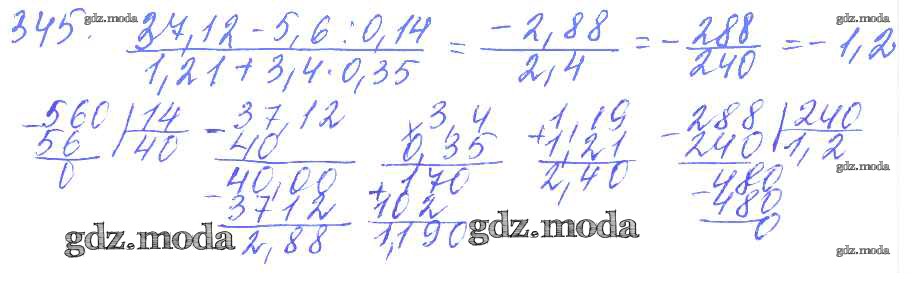 345. 37,12 - 5,6 : 0,14 / 1,21 + 3,4 · 0,35 = -2,88 / 2,4 = - 288 / 240 = -1,2
gdz.moda
gdz.moda
gdz.moda
-560 | 14
56 | 40
0
-37,12
40
-40,00
3712
2,88
×3,4
0,35
+170
102
1,190
+1,19
1,21
2,40
-288 | 240
240 | 1,2
-480
480
0
gdz.moda
gdz.moda
gdz.moda
gdz.moda